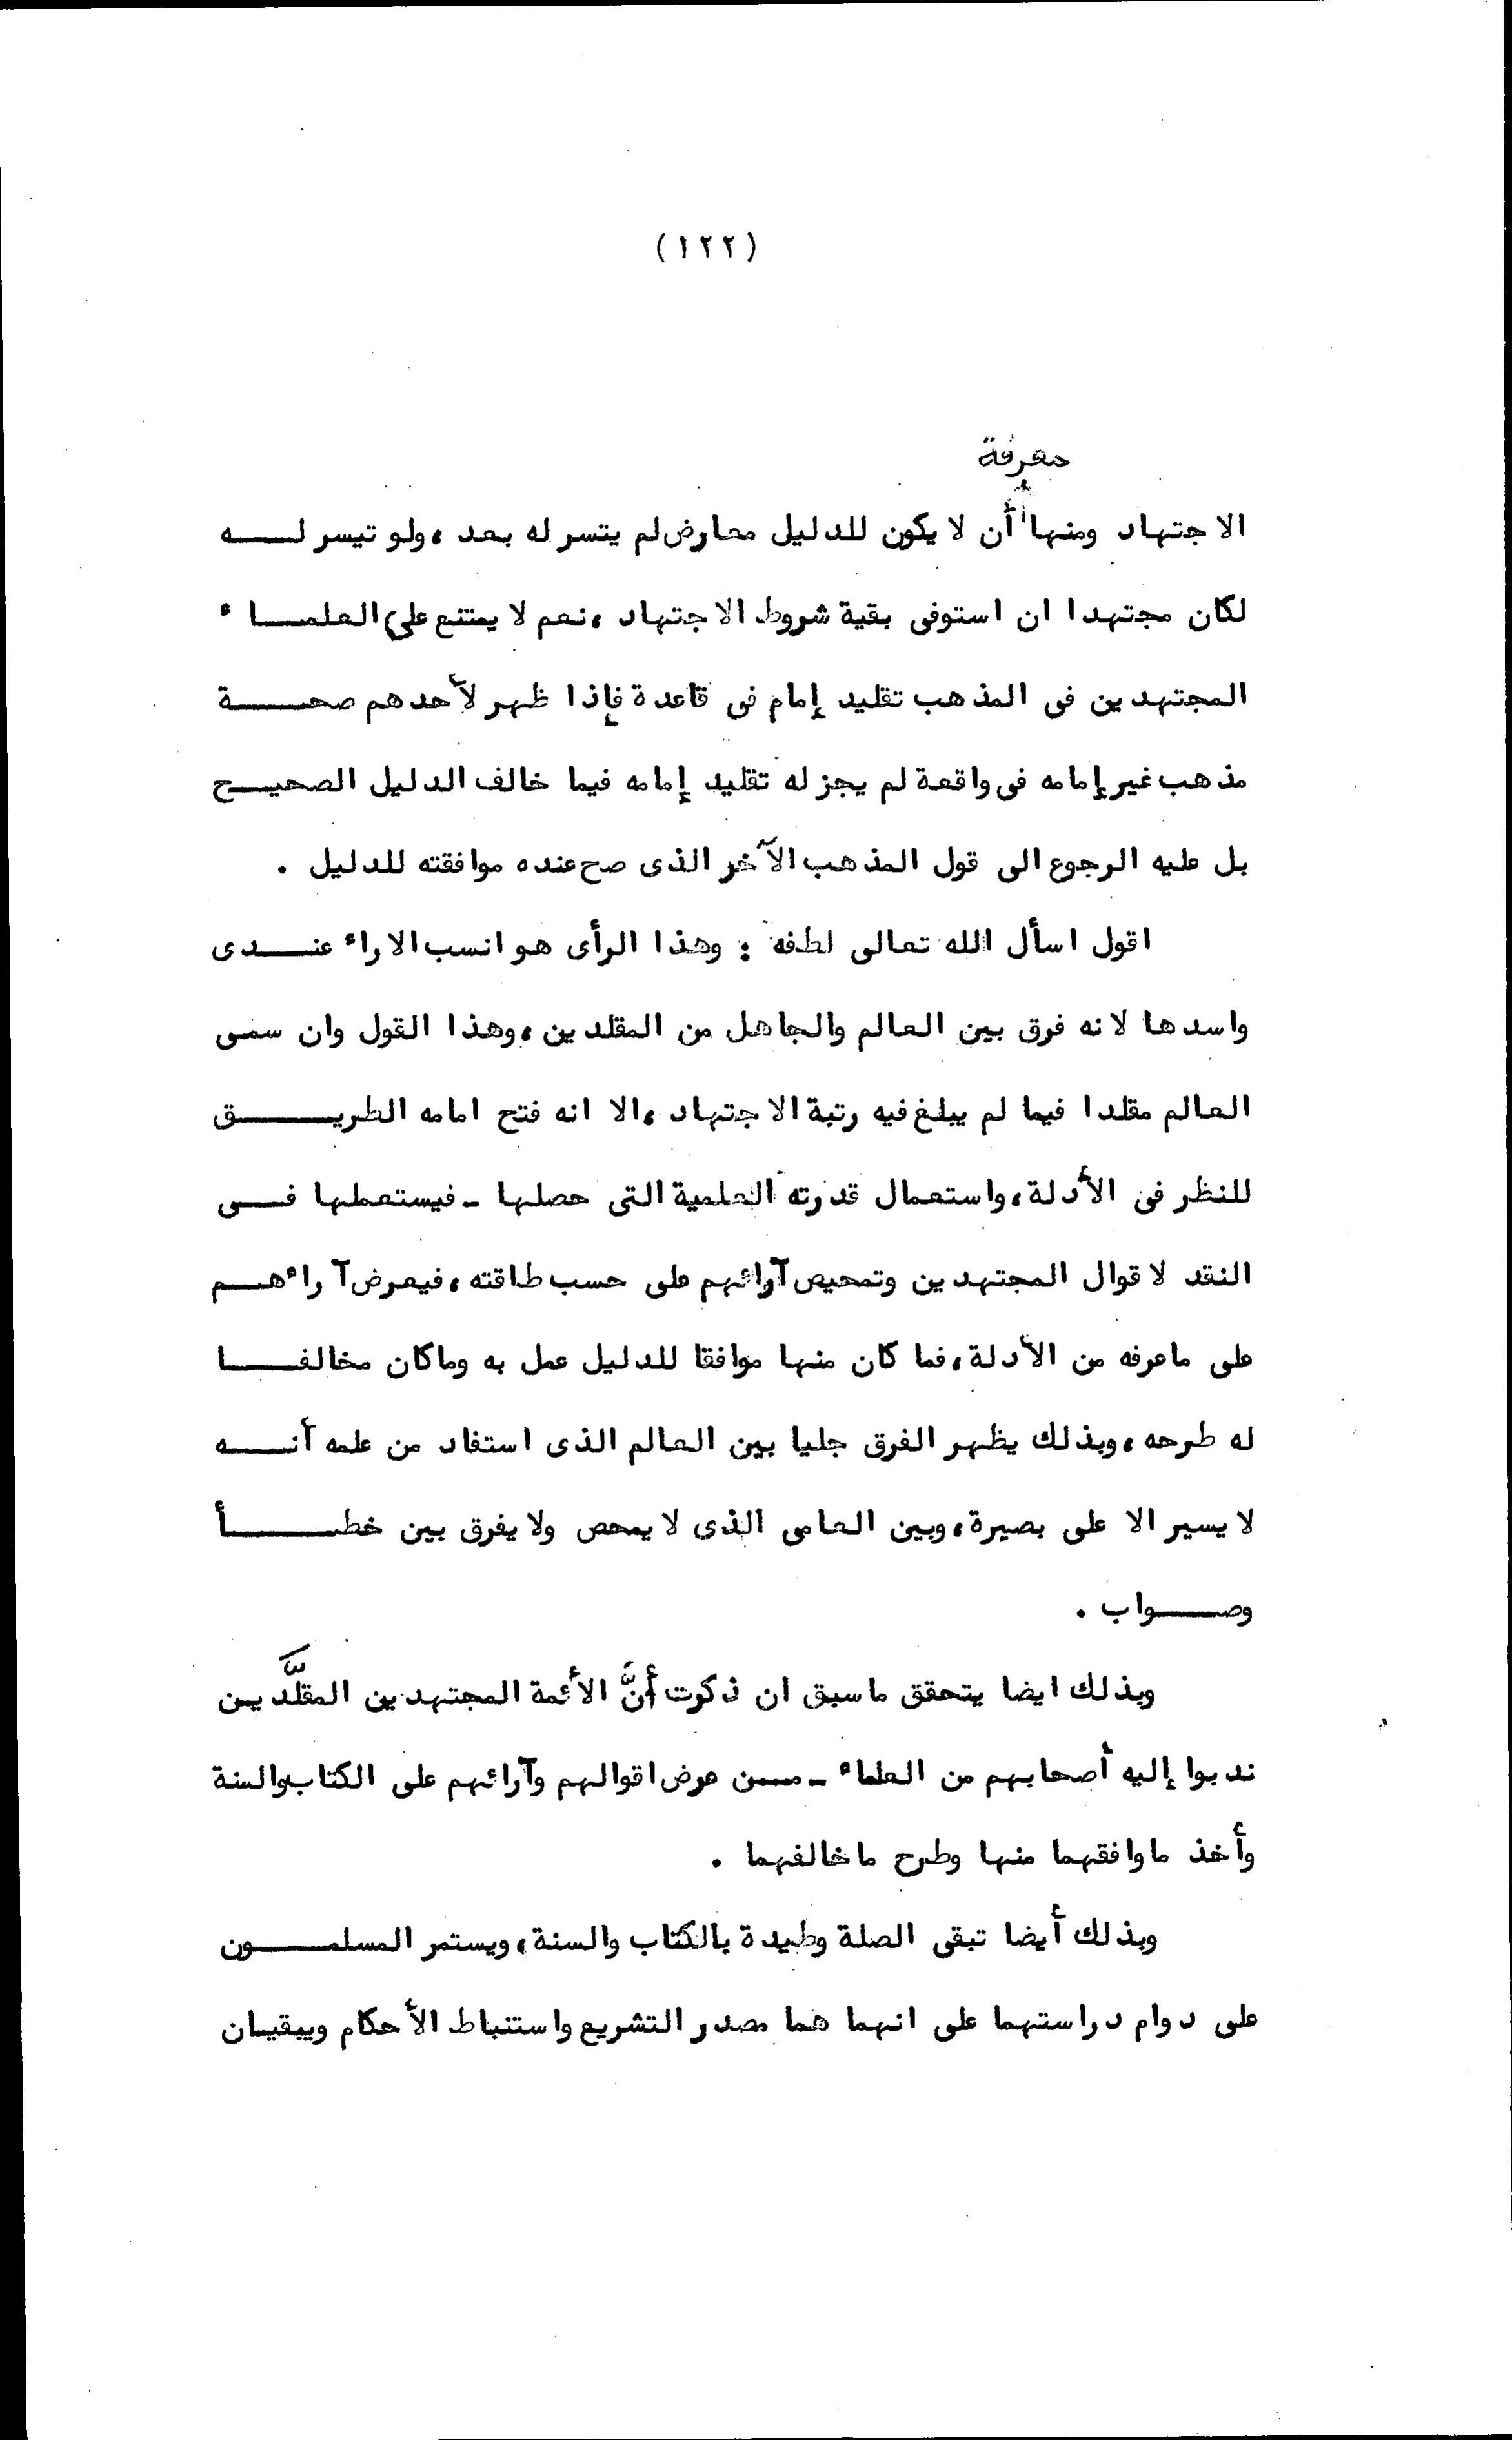 (١٢٢)
معرفة
الاجتهاد ومنها أن لا يكون للدليل معارض لم يتسر له بعد ، ولو تيسر له
لكان مجتهدا ان استوفى بقية شروط الاجتهاد ، نعم لا يمتنع على العلماء
المجتهدين فى المذهب تقليد إمام فى قاعدة فإذا ظهر لأحدهم صحة
مذهب غير إمامه فى واقعة لم يجز له تقليد إمامه فيما خالف الدليل الصحيح
بل عليه الرجوع الى قول المذهب الآخر الذى صح عنده موافقته للدليل .
اقول اسأل الله تعالى لطفه : وهذا الرأى هو انسب الاراء عندى
واسدها لانه فرق بين العالم والجاهل من المقلدين ، وهذا القول وان سمى
العالم مقلدا فيما لم يبلغ فيه رتبة الاجتهاد ، الا انه فتح امامه الطريق
للنظر فى الأدلة ، واستعمال قدرته العلمية التى حصلها - فيستعملها فى
النقد لاقوال المجتهدين وتمحيص آرائهم على حسب طاقته ، فيعرض آراءهم
على ماعرفه من الأدلة ، فما كان منها موافقا للدليل عمل به وماكان مخالفا
له طرحه ، وبذلك يظهر الفرق جليا بين العالم الذى استفاد من علمه أنه
لا يسير الا على بصيرة ، وبين العامى الذى لا يمحص ولا يفرق بين خطأ
وصواب .
وبذلك ايضا يتحقق ماسبق ان ذكرت أنَّ الأئمة المجتهدين المقلَّدين
ندبوا إليه أصحابهم من العلماء - من عرض اقوالهم وآرائهم على الكتاب والسنة
وأخذ ماوافقهما منها وطرح ماخالفهما .
وبذلك أيضا تبقى الصلة وطيدة بالكتاب والسنة ، ويستمر المسلمون
على دوام دراستهما على انهما هما مصدر التشريع واستنباط الأحكام ويبقيان